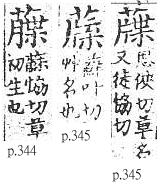 蘇協切草
初生也
p.344
蘇叶切
艸名也
p.345
思俠切草名
又徒協切
p.345